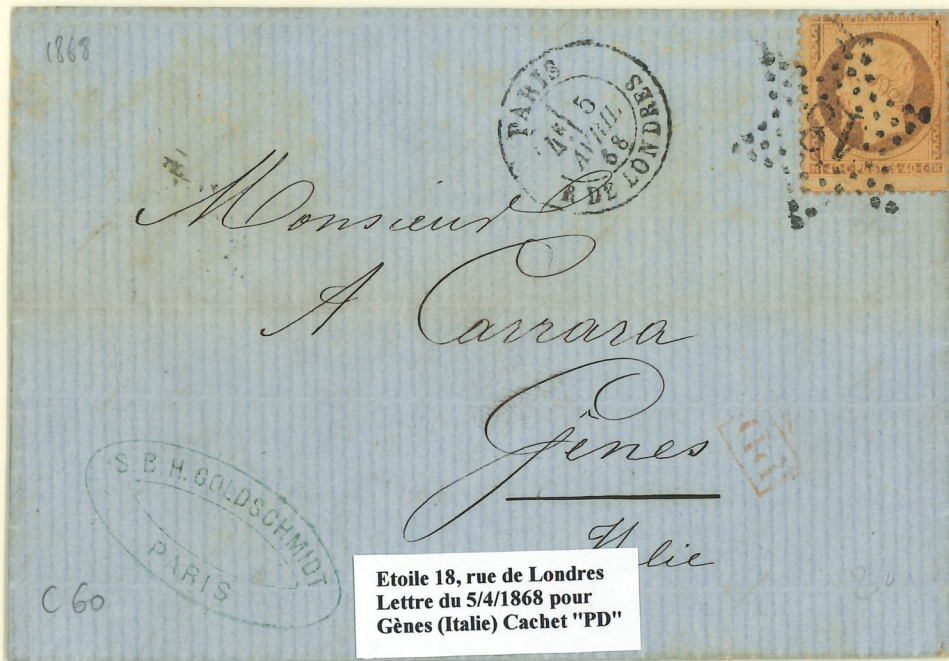 1868
PARIS
4E 5
AVRIL
68
R DE LONDRES
18
POSTES 40 C
Monsieur
A Carrara
Gênes
Italie
PD
S. B. H. GOLDSCHMIDT
PARIS
C 60
Etoile 18, rue de Londres
Lettre du 5/4/1868 pour
Gènes (Italie) Cachet "PD"